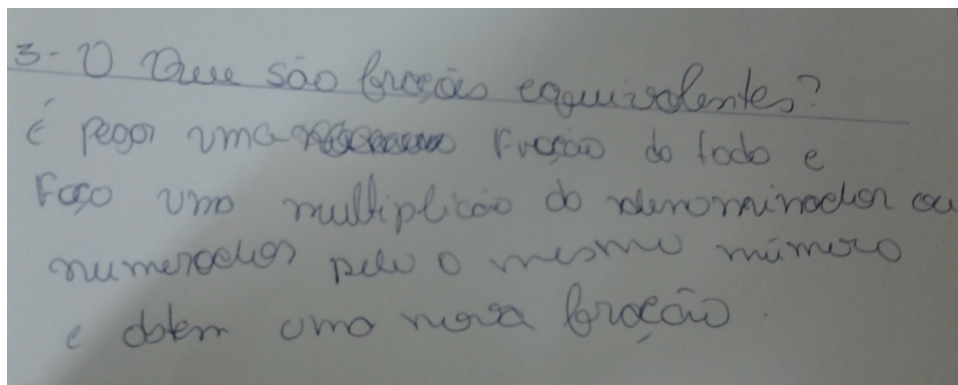 3- O Que são fração equivalentes?
é pegar uma fração do todo e
Faço uma multiplicão do denominador ou
numerador pelo o mesmo número
e obtem uma nova fração.